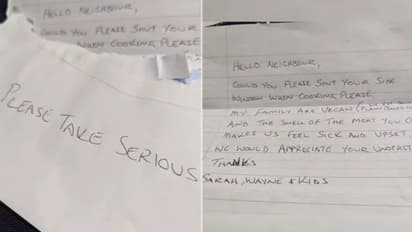 HELLO NEIGHBOUR,
COULD YOU PLEASE SHUT YOUR
WINDOW WHEN COOKING PLEASE
PLEASE TAKE SERIOUS
HELLO NEIGHBOUR,
COULD YOU PLEASE SHUT YOUR SIDE
WINDOW WHEN COOKING PLEASE
MY FAMILY ARE VEGAN
AND THE SMELL OF THE MEAT YOU
MAKES US FEEL SICK AND UPSET
WE WOULD APPRECIATE YOUR
THANKS
SARAH, WAYNE & KIDS